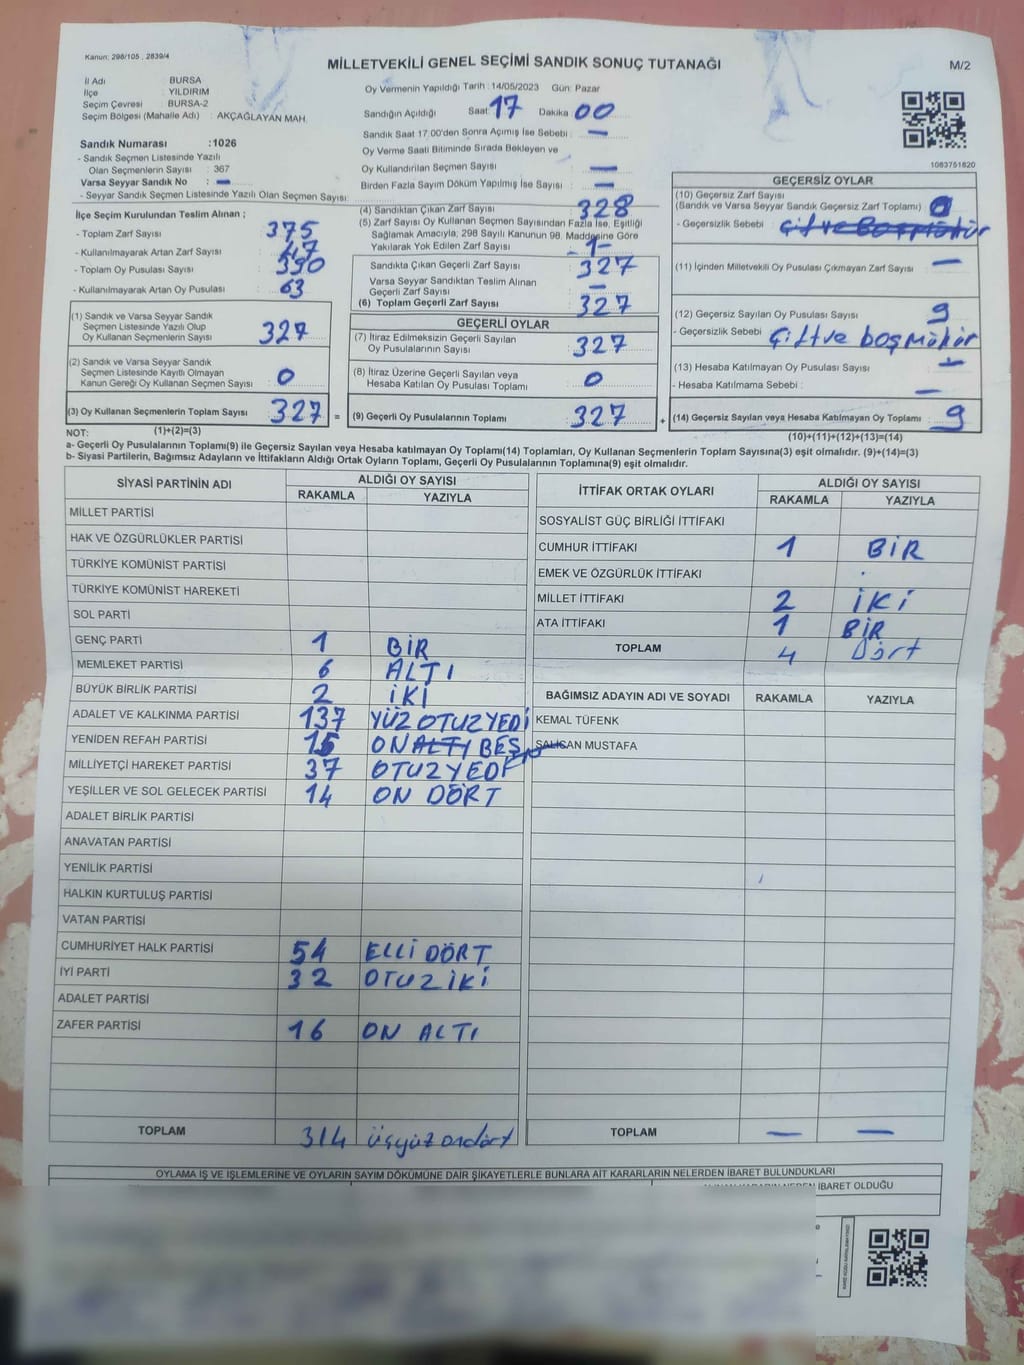 Kanun: 298/105 , 2839/4
MİLLETVEKİLİ GENEL SEÇİMİ SANDIK SONUÇ TUTANAĞI
M/2
İl Adı : BURSA
İlçe : YILDIRIM
Seçim Çevresi : BURSA-2
Seçim Bölgesi (Mahalle Adı) : AKÇAĞLAYAN MAH.
Oy Vermenin Yapıldığı Tarih : 14/05/2023 Gün: Pazar
Sandığın Açıldığı Saat: 17 Dakika : 00
Sandık Saat 17:00'den Sonra Açımış İse Sebebi : —
Oy Verme Saati Bitiminde Sırada Bekleyen ve
Oy Kullandırılan Seçmen Sayısı : —
Birden Fazla Sayım Döküm Yapılmış İse Sayısı : —
1083751820
Sandık Numarası :1026
- Sandık Seçmen Listesinde Yazılı
Olan Seçmenlerin Sayısı : 367
Varsa Seyyar Sandık No : —
- Seyyar Sandık Seçmen Listesinde Yazılı Olan Seçmen Sayısı:
İlçe Seçim Kurulundan Teslim Alınan ;
- Toplam Zarf Sayısı : 375
- Kullanılmayarak Artan Zarf Sayısı : 47
- Toplam Oy Pusulası Sayısı : 390
- Kullanılmayarak Artan Oy Pusulası : 63
(1) Sandık ve Varsa Seyyar Sandık
Seçmen Listesinde Yazılı Olup
Oy Kullanan Seçmenlerin Sayısı : 327
(2) Sandık ve Varsa Seyyar Sandık
Seçmen Listesinde Kayıtlı Olmayan
Kanun Gereği Oy Kullanan Seçmen Sayısı : 0
(3) Oy Kullanan Seçmenlerin Toplam Sayısı : 327 =
(4) Sandıktan Çıkan Zarf Sayısı : 328
(5) Zarf Sayısı Oy Kullanan Seçmen Sayısından Fazla İse, Eşitliği
Sağlamak Amacıyla; 298 Sayılı Kanunun 98. Maddesine Göre
Yakılarak Yok Edilen Zarf Sayısı : -1-
Sandıkta Çıkan Geçerli Zarf Sayısı : 327
Varsa Seyyar Sandıktan Teslim Alınan
Geçerli Zarf Sayısı : —
(6) Toplam Geçerli Zarf Sayısı : 327
GEÇERLİ OYLAR
(7) İtiraz Edilmeksizin Geçerli Sayılan
Oy Pusulalarının Sayısı : 327
(8) İtiraz Üzerine Geçerli Sayılan veya
Hesaba Katılan Oy Pusulası Toplamı : 0
(9) Geçerli Oy Pusulalarının Toplamı : 327 +
GEÇERSİZ OYLAR
(10) Geçersiz Zarf Sayısı
(Sandık ve Varsa Seyyar Sandık Geçersiz Zarf Toplamı) : 0
- Geçersizlik Sebebi : Çift ve Boş Mühür
(11) İçinden Milletvekili Oy Pusulası Çıkmayan Zarf Sayısı : —
(12) Geçersiz Sayılan Oy Pusulası Sayısı : 9
- Geçersizlik Sebebi : Çift ve boş Mühür
(13) Hesaba Katılmayan Oy Pusulası Sayısı : —
- Hesaba Katılmama Sebebi : —
(14) Geçersiz Sayılan veya Hesaba Katılmayan Oy Toplamı : 9
NOT: (1)+(2)=(3)
(10)+(11)+(12)+(13)=(14)
a- Geçerli Oy Pusulalarının Toplamı(9) ile Geçersiz Sayılan veya Hesaba katılmayan Oy Toplamı(14) Toplamları, Oy Kullanan Seçmenlerin Toplam Sayısına(3) eşit olmalıdır. (9)+(14)=(3)
b- Siyasi Partilerin, Bağımsız Adayların ve İttifakların Aldığı Ortak Oyların Toplamı, Geçerli Oy Pusulalarının Toplamına(9) eşit olmalıdır.
SİYASİ PARTİNİN ADI ALDIĞI OY SAYISI
RAKAMLA YAZIYLA
MİLLET PARTİSİ
HAK VE ÖZGÜRLÜKLER PARTİSİ
TÜRKİYE KOMÜNİST PARTİSİ
TÜRKİYE KOMÜNİST HAREKETİ
SOL PARTİ
GENÇ PARTİ 1 BİR
MEMLEKET PARTİSİ 6 ALTI
BÜYÜK BİRLİK PARTİSİ 2 İKİ
ADALET VE KALKINMA PARTİSİ 137 YÜZ OTUZ YEDİ
YENİDEN REFAH PARTİSİ 15 ON ALTI BEŞ
MİLLİYETÇİ HAREKET PARTİSİ 37 OTUZ YEDİ
YEŞİLLER VE SOL GELECEK PARTİSİ 14 ON DÖRT
ADALET BİRLİK PARTİSİ
ANAVATAN PARTİSİ
YENİLİK PARTİSİ
HALKIN KURTULUŞ PARTİSİ
VATAN PARTİSİ
CUMHURİYET HALK PARTİSİ 54 ELLİ DÖRT
İYİ PARTİ 32 OTUZ İKİ
ADALET PARTİSİ
ZAFER PARTİSİ 16 ON ALTI
TOPLAM 314 üçyüz ondört
İTTİFAK ORTAK OYLARI ALDIĞI OY SAYISI
RAKAMLA YAZIYLA
SOSYALİST GÜÇ BİRLİĞİ İTTİFAKI
CUMHUR İTTİFAKI 1 BİR
EMEK VE ÖZGÜRLÜK İTTİFAKI
MİLLET İTTİFAKI 2 İKİ
ATA İTTİFAKI 1 BİR
TOPLAM 4 Dört
BAĞIMSIZ ADAYIN ADI VE SOYADI RAKAMLA YAZIYLA
KEMAL TÜFENK
SALİCAN MUSTAFA
TOPLAM — —
OYLAMA İŞ VE İŞLEMLERİNE VE OYLARIN SAYIM DÖKÜMÜNE DAİR ŞİKAYETLERLE BUNLARA AİT KARARLARIN NELERDEN İBARET BULUNDUKLARI
İBARET OLDUĞU